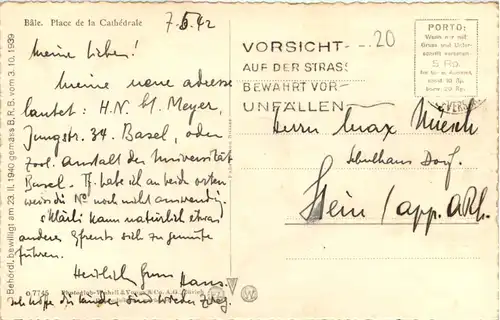 Bâle. Place de la Cathédrale
7.5.42
Meine Lieben!
Meine neue adresse
lautet: H.N. bf. Meyer,
Jungstr. 34. Basel, oder
zool. anstalt der Universität
Basel. Tf. habe ich an beide orten
weiss die No noch nicht auswendig.
Klärli kann natürlich etwas
anderes sich zu gemüte
führen.
Herzlich Hans.
ich hoffe die sind wieder zweg.
Behördl. bewilligt am 23. II. 1940 gemäss B.R.B. vom 3. 10. 1939
O 7745
VORSICHT
AUF DER STRASS
BEWAHRT VOR
UNFÄLLEN
20
PORTO:
Wenn nur mit
Gruss und Unter-
schrift versehen
5 Rp.
sonst 10 Rp.
bezw. 20 Rp.
Herrn Max Nüesch
Schulhaus Dorf.
Stein / app. A.Rh.